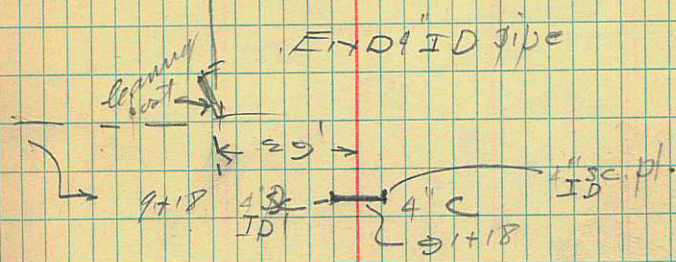 End 4" ID pipe
leaning
post
29'
9+18 4" ID 4" C 4" ID sc. pl.
1+18